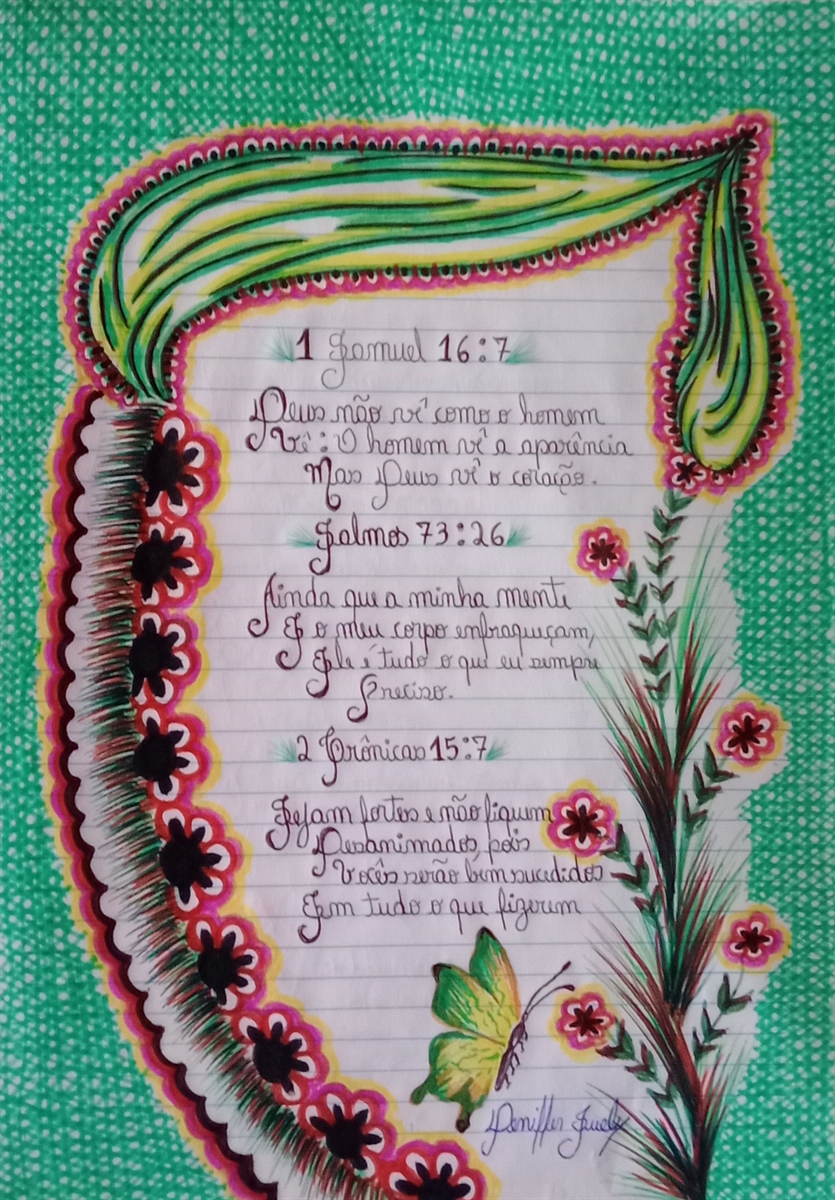 1 Samuel 16:7
Deus não vê como o homem
Vê: O homem vê a aparência
Mas Deus vê o coração.
Salmos 73:26
Ainda que a minha mente
E o meu corpo enfraqueçam,
Ele é tudo o que eu sempre
Preciso.
2 Crônicas 15:7
Sejam fortes e não fiquem
Desanimados, pois
Vocês serão bem sucedidos
Em tudo o que fizerem